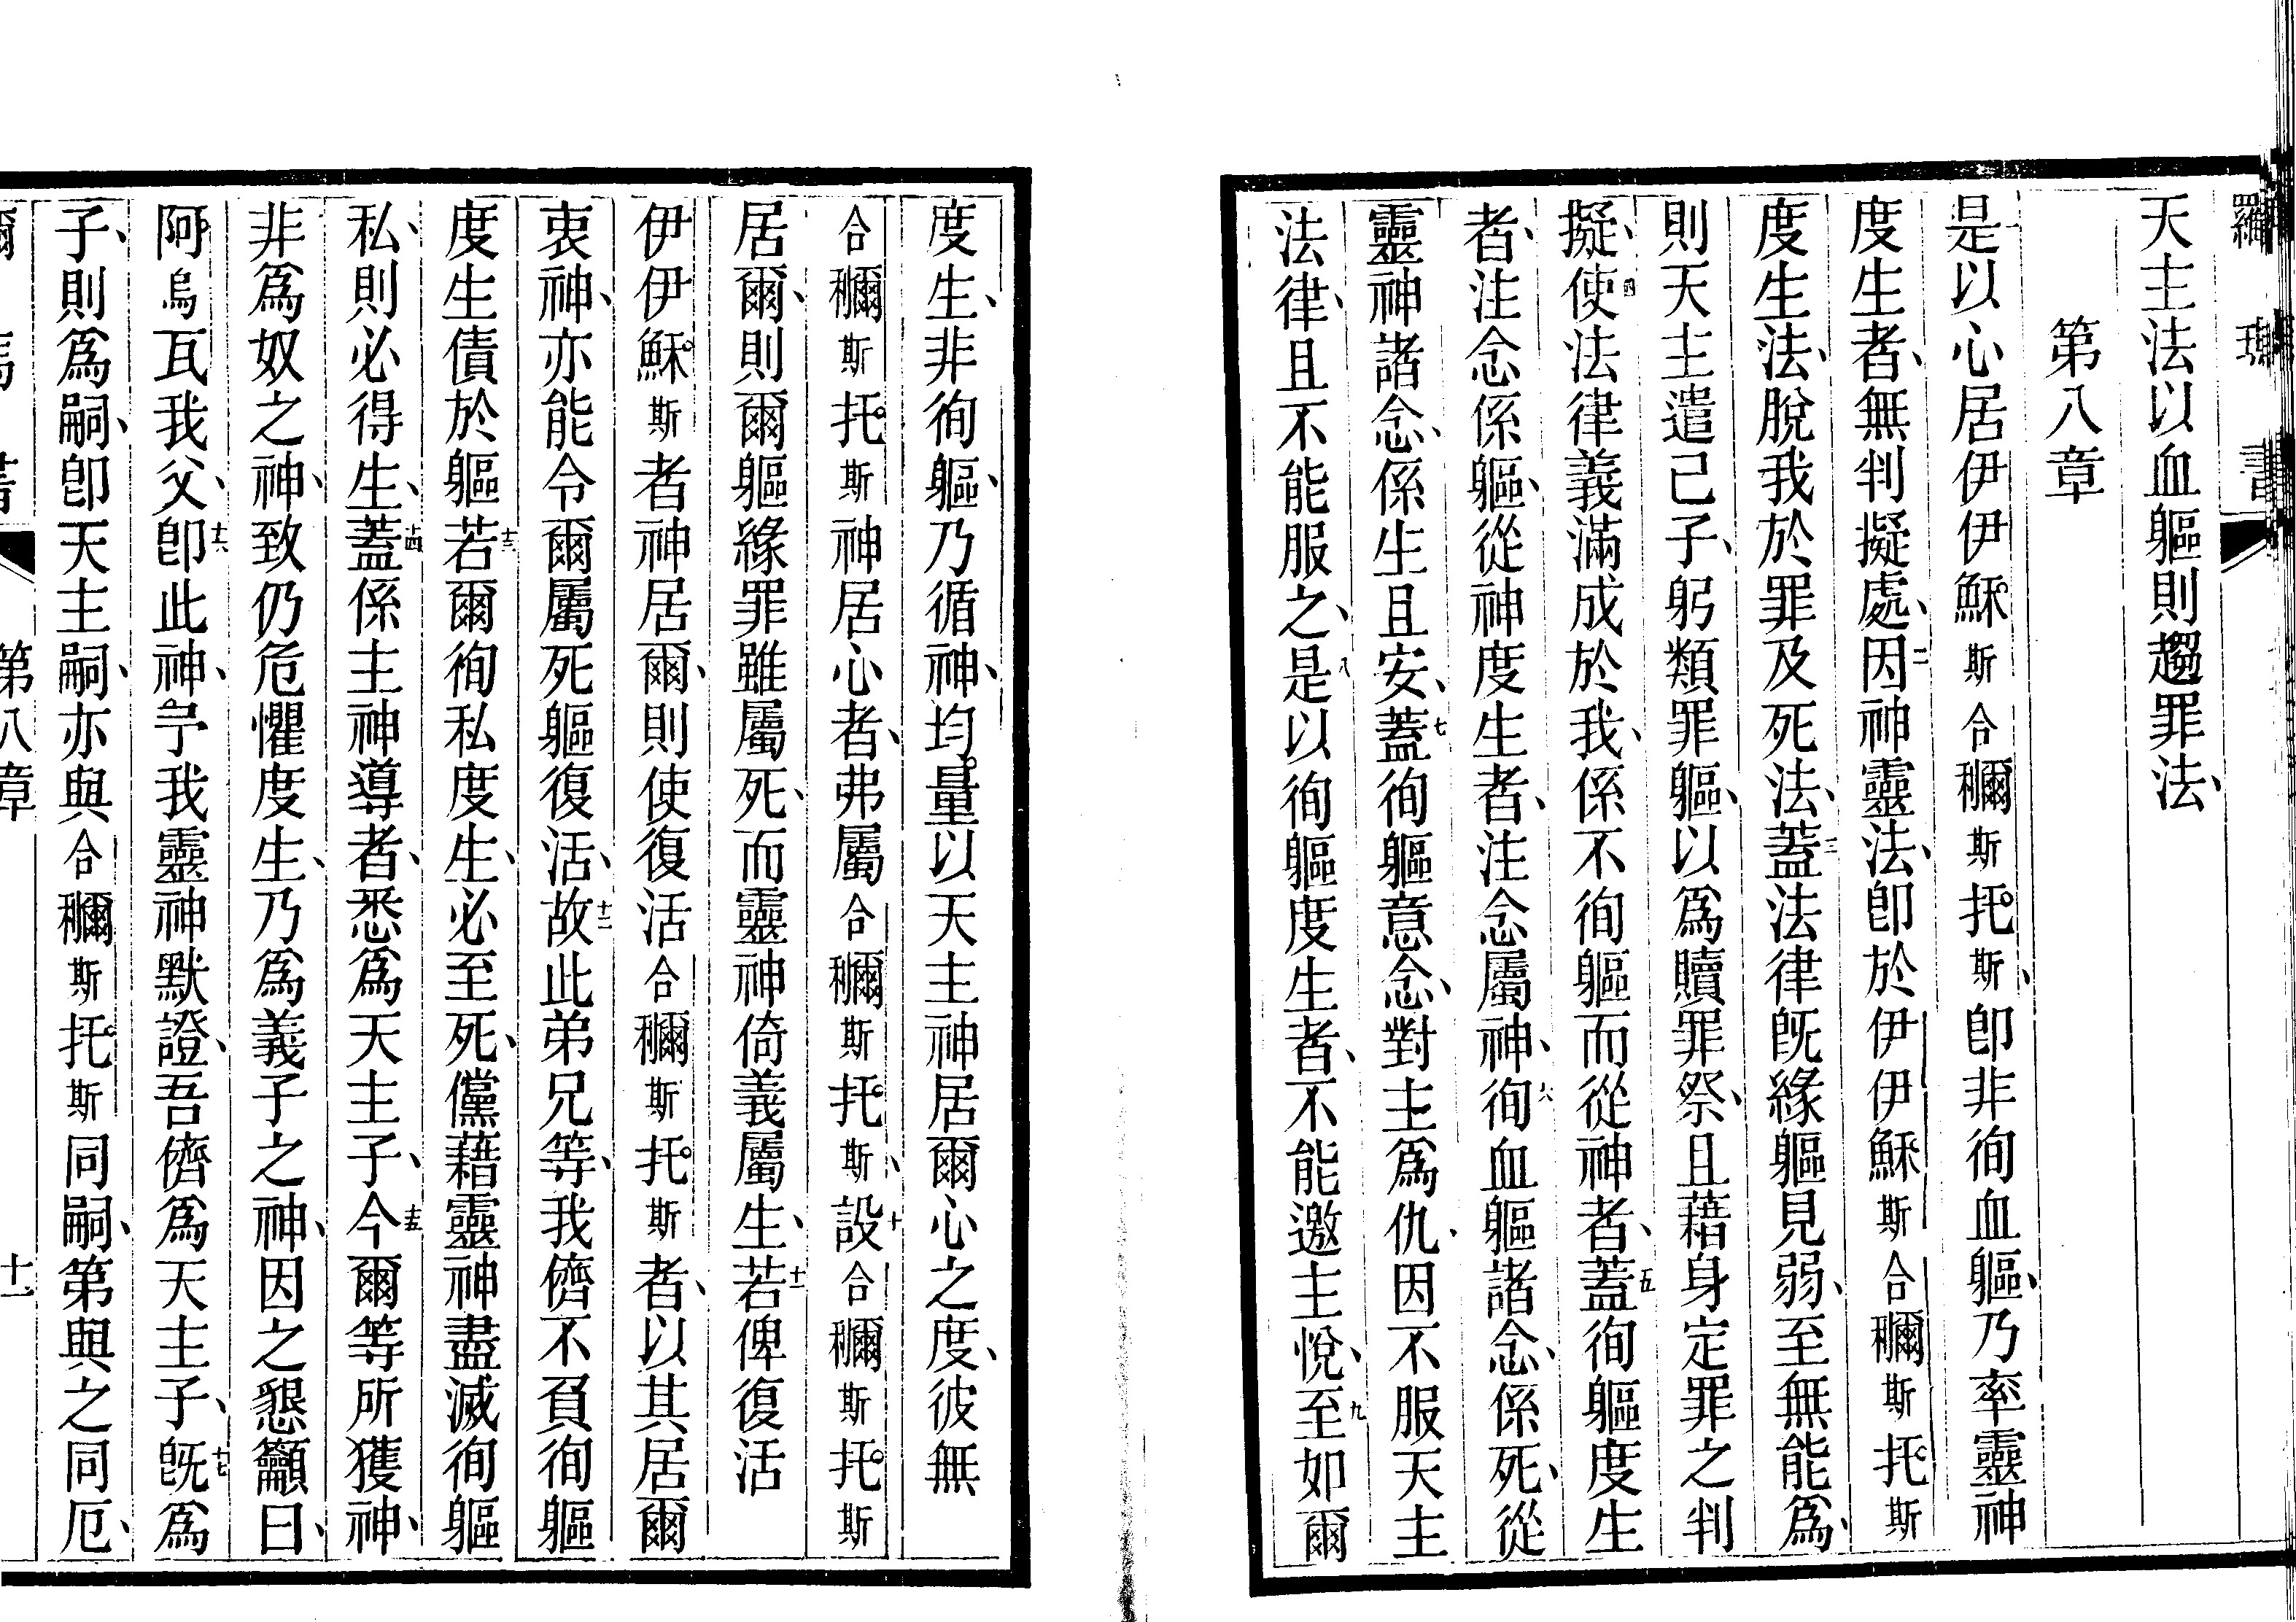 天主法以血軀則趨罪法、
第八章
一是以心居伊伊穌斯合穪斯托斯、卽非徇血軀、乃率靈神
度生者、無判擬處、二因神靈法、卽於伊伊穌斯合穪斯托斯
度生法、脫我於罪及死法、三蓋法律旣緣軀見弱、至無能爲、
則天主遣己子、躬類罪軀、以爲贖罪祭、且藉身定罪之判
擬、四使法律義滿成於我、係不徇軀而從神者、五蓋徇軀度生
者、注念係軀、從神度生者、注念屬神、六徇血軀諸念、係死、從
靈神諸念、係生且安、七蓋徇軀意念、對主爲仇、因不服天主
法律、且不能服之、八是以徇軀度生者、不能邀主悅、九至如爾
度生、非徇軀、乃循神、均量以天主神居爾心之度、彼無
合穪斯托斯神居心者、弗屬合穪斯托斯、十設合穪斯托斯
居爾、則爾軀緣罪雖屬死、而靈神倚義屬生、十一若俾復活
伊伊穌斯者神居爾、則使復活合穪斯托斯者、以其居爾
衷神、亦能令爾屬死軀復活、十二故此弟兄等、我儕不負徇軀
度生債於軀、十三若爾徇私度生、必至死、儻藉靈神盡滅徇軀
私、則必得生、十四蓋係主神導者、悉爲天主子、十五今爾等所獲神、
非爲奴之神、致仍危懼度生、乃爲義子之神、因之懇籲曰、
阿烏瓦我父、十六卽此神、予我靈神默證、吾儕爲天主子、十七旣爲
子、則爲嗣、卽天主嗣、亦與合穪斯托斯同嗣、第與之同厄、
第八章
十一